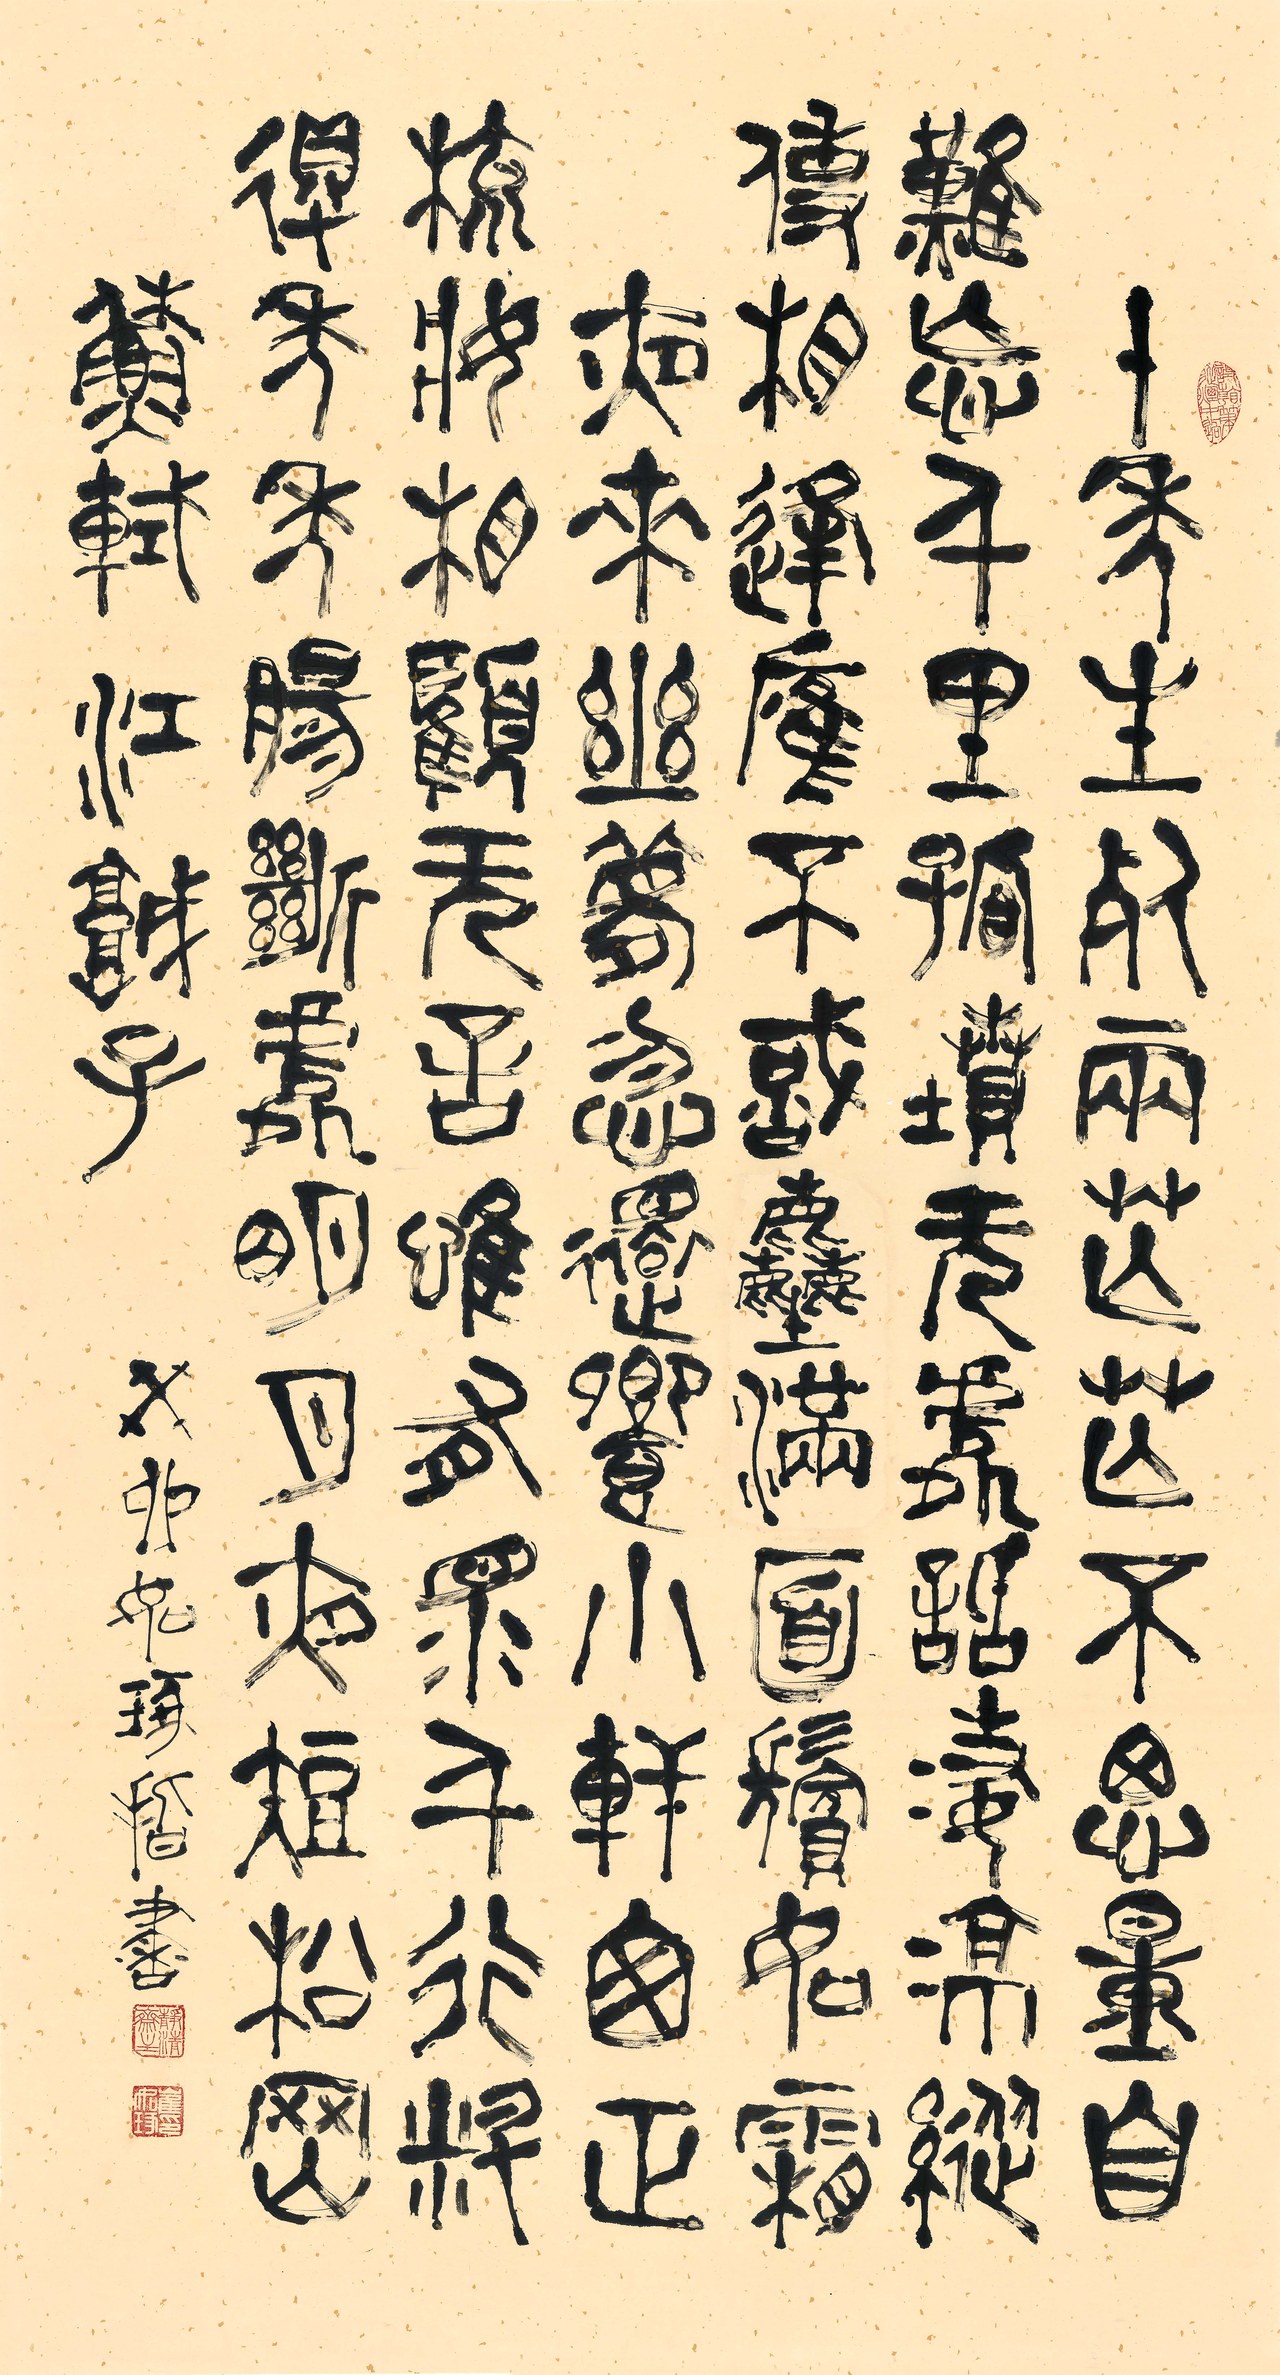 十年生死兩茫茫不思量自
難忘千里孤墳无處話淒涼縱
使相逢應不識塵滿面鬢如霜
夜來幽夢忽還鄉小軒窗正
梳妝相顧无言惟有淚千行料
得年年腸斷處明月夜短松岡
蘇軾江城子
書